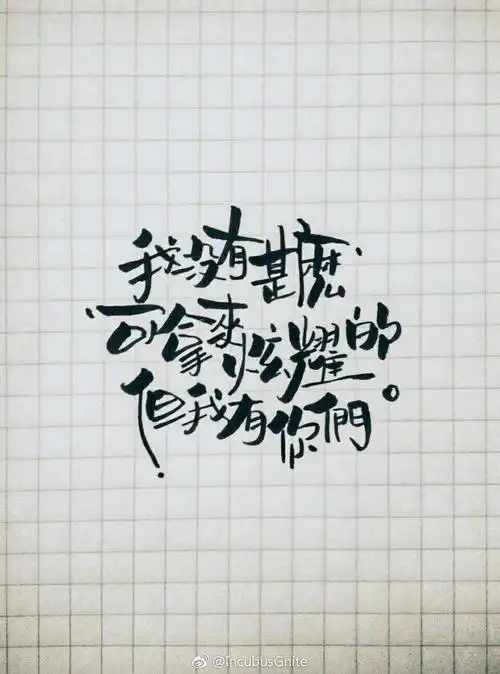 我沒有甚麼
可拿來炫耀的
但我有你們。
@IncubusGnite